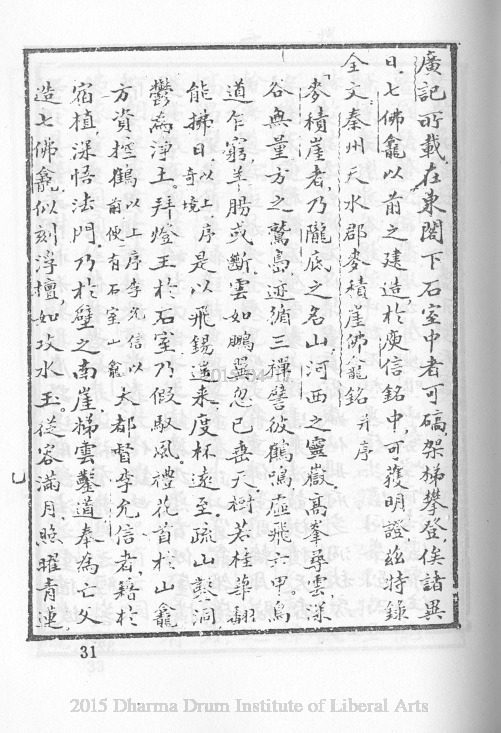 廣記所載在東閣下石室中者可碻架梯攀登俟諸異
日七佛龕以前之建造於庾信銘中可獲明證茲特錄
全文秦州天水郡麥積崖佛龕銘并序
「麥積崖者乃隴底之名山河西之靈嶽高峯尋雲深
谷無量方之鷲島迹遁三禪譬彼鶴鳴虛飛六甲鳥
道乍窮羊腸或斷雲如鵬翼忽已垂天樹若桂華翻
能拂日以上序奇境是以飛錫遙來度杯遠至疏山鑿洞
鬱為淨土拜燈王於石室乃假馭風禮花首於山龕
方資控鶴以上序李允信以前便有石室山龕大都督李允信者籍於
宿植深悟法門乃於壁之南崖梯雲鑿道奉為亡父
造七佛龕似刻浮檀如攻水玉從容滿月照曜青蓮
31
2015 Dharma Drum Institute of Liberal Arts